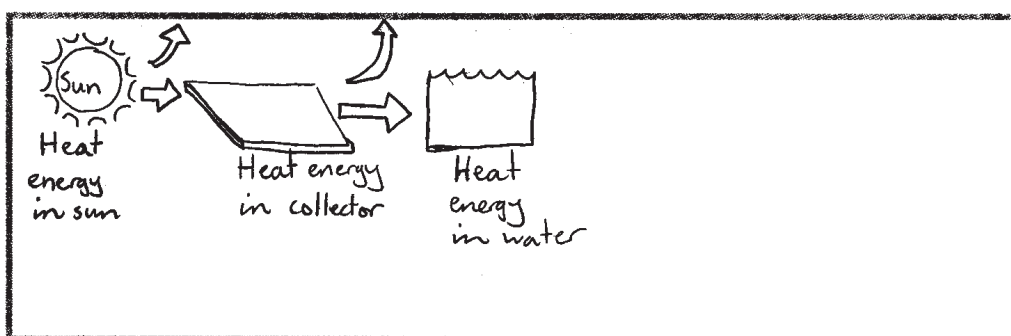 Sun
Heat
energy
in sun
Heat energy
in collector
Heat
energy
in water